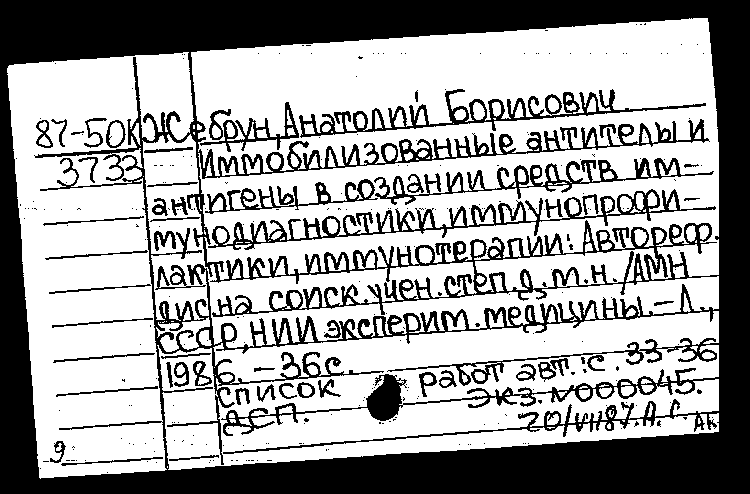 87-50К Жебрун, Анатолий Борисович
3733 Иммобилизованные антителы и
антигены в создании средств им-
мунодиагностики, иммунопрофи-
лактики, иммунотерапии: Автореф.
дис. на соиск. учен. степ. д. м. н. /АМН
СССР, НИИ эксперим. медицины. – Л.,
1986. – 36 с.
список работ авт.: с. 33-36
ДСП. Экз. N000045.
20/VII87. А. С. Ак
9